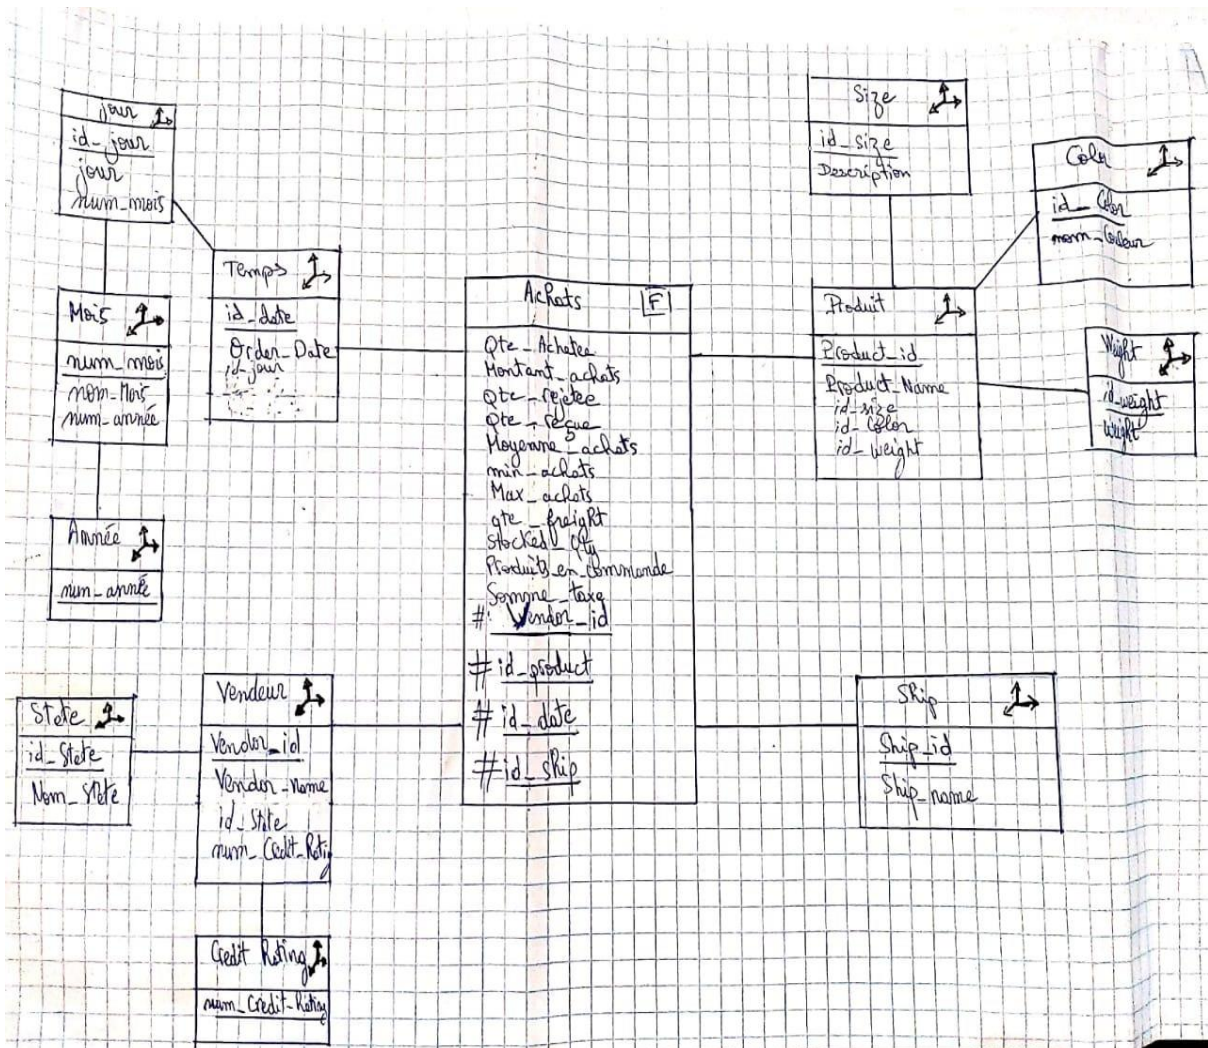 jour
id_jour
jour
num_mois
Mois
num_mois
nom_Mois
num_année
Année
num_année
Temps
id_date
Order_Date
id_jour
Achats
F
Qte_Achatee
Montant_achats
Qte_rejetee
Qte_reçue
Moyenne_achats
min_achats
Max_achats
qte_freight
Stocked_Qty
Produits_en_commande
Somme_taxe
# Vendor_id
# id_product
# id_date
# id_ship
Size
id_size
Description
Color
id_Color
nom_Couleur
Produit
Product_id
Product_Name
id_size
id_Color
id_weight
Weight
id_weight
Weight
State
id_State
Nom_State
Vendeur
Vendor_id
Vendor_name
id_State
num_Credit_Rating
Credit Rating
num_Credit_Rating
Ship
Ship_id
Ship_name